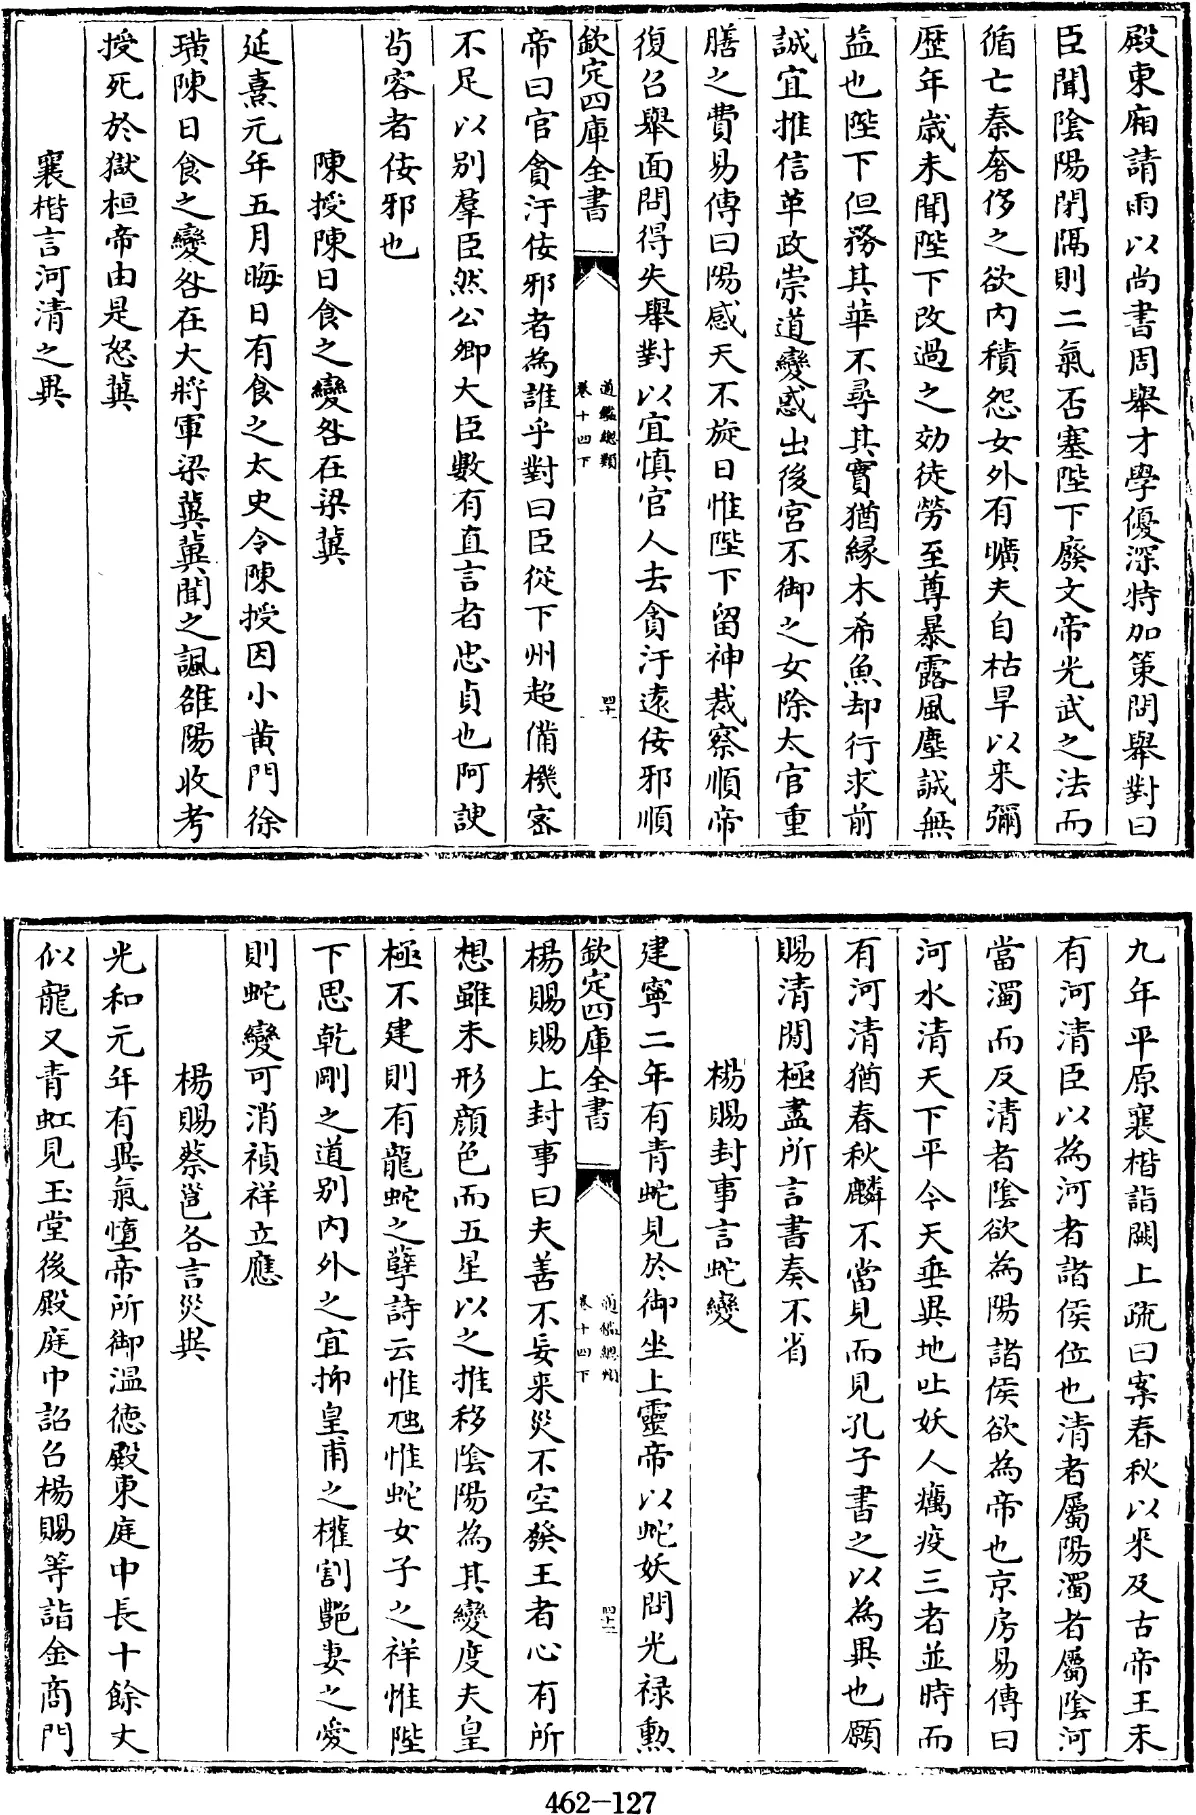 殿東廂請雨以尚書周舉才學優深特加策問舉對曰
臣聞陰陽閉隔則二氣否塞陛下廢文帝光武之法而
循亡秦奢侈之欲内積怨女外有曠夫自枯旱以来彌
歴年歲未聞陛下改過之効徒勞至尊暴露風塵誠無
益也陛下但務其華不尋其實猶縁木希魚却行求前
誠宜推信革政崇道變惑出後宫不御之女除太官重
膳之費易傳曰陽感天不旋日惟陛下留神裁察順帝
復召舉面問得失舉對以宜慎官人去貪汙遠佞邪順
欽定四庫全書
通鑑總類
卷十四下
四十一
帝曰官貪汙佞邪者為誰乎對曰臣從下州超備機密
不足以别羣臣然公卿大臣數有直言者忠貞也阿諛
茍容者佞邪也
陳授陳日食之變咎在梁冀
延熹元年五月晦日有食之太史令陳授因小黄門徐
璜陳日食之變咎在大將軍梁冀冀聞之諷雒陽收考
授死於獄桓帝由是怒冀
襄楷言河清之異
九年平原襄楷詣闕上疏曰案春秋以來及古帝王未
有河清臣以為河者諸侯位也清者屬陽濁者屬陰河
當濁而反清者陰欲為陽諸侯欲為帝也京房易傳曰
河水清天下平今天垂異地吐妖人癘疫三者並時而
有河清猶春秋麟不當見而見孔子書之以為異也願
賜清閒極盡所言書奏不省
楊賜封事言蛇變
建寧二年有青蛇見於御坐上靈帝以蛇妖問光禄勲
欽定四庫全書
通鑑總類
卷十四下
四十二
楊賜賜上封事曰夫善不妄來災不空發王者心有所
想雖未形顔色而五星以之推移陰陽為其變度夫皇
極不建則有龍蛇之孽詩云惟虺惟蛇女子之祥惟陛
下思乾剛之道别内外之宜抑皇甫之權割艷妻之愛
則蛇變可消禎祥立應
楊賜蔡邕各言災異
光和元年有異氣墮帝所御温徳殿東庭中長十餘丈
似龍又青虹見玉堂後殿庭中詔召楊賜等詣金商門
462-127